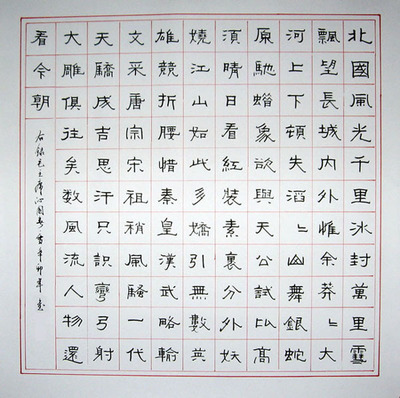 北國風光千里冰封萬里雪
飄望長城内外惟余莽〻大
河上下頓失滔〻山舞銀蛇
原馳蜡象欲與天公試比高
須晴日看紅裝素裹分外妖
燒江山如此多嬌引無數英
雄競折腰惜秦皇漢武略輸
文采唐宗宋祖稍風騷一代
天驕成吉思汗只識彎弓射
大雕俱往矣数風流人物還
看今朝
右錄毛主席沁園春雪辛卯年